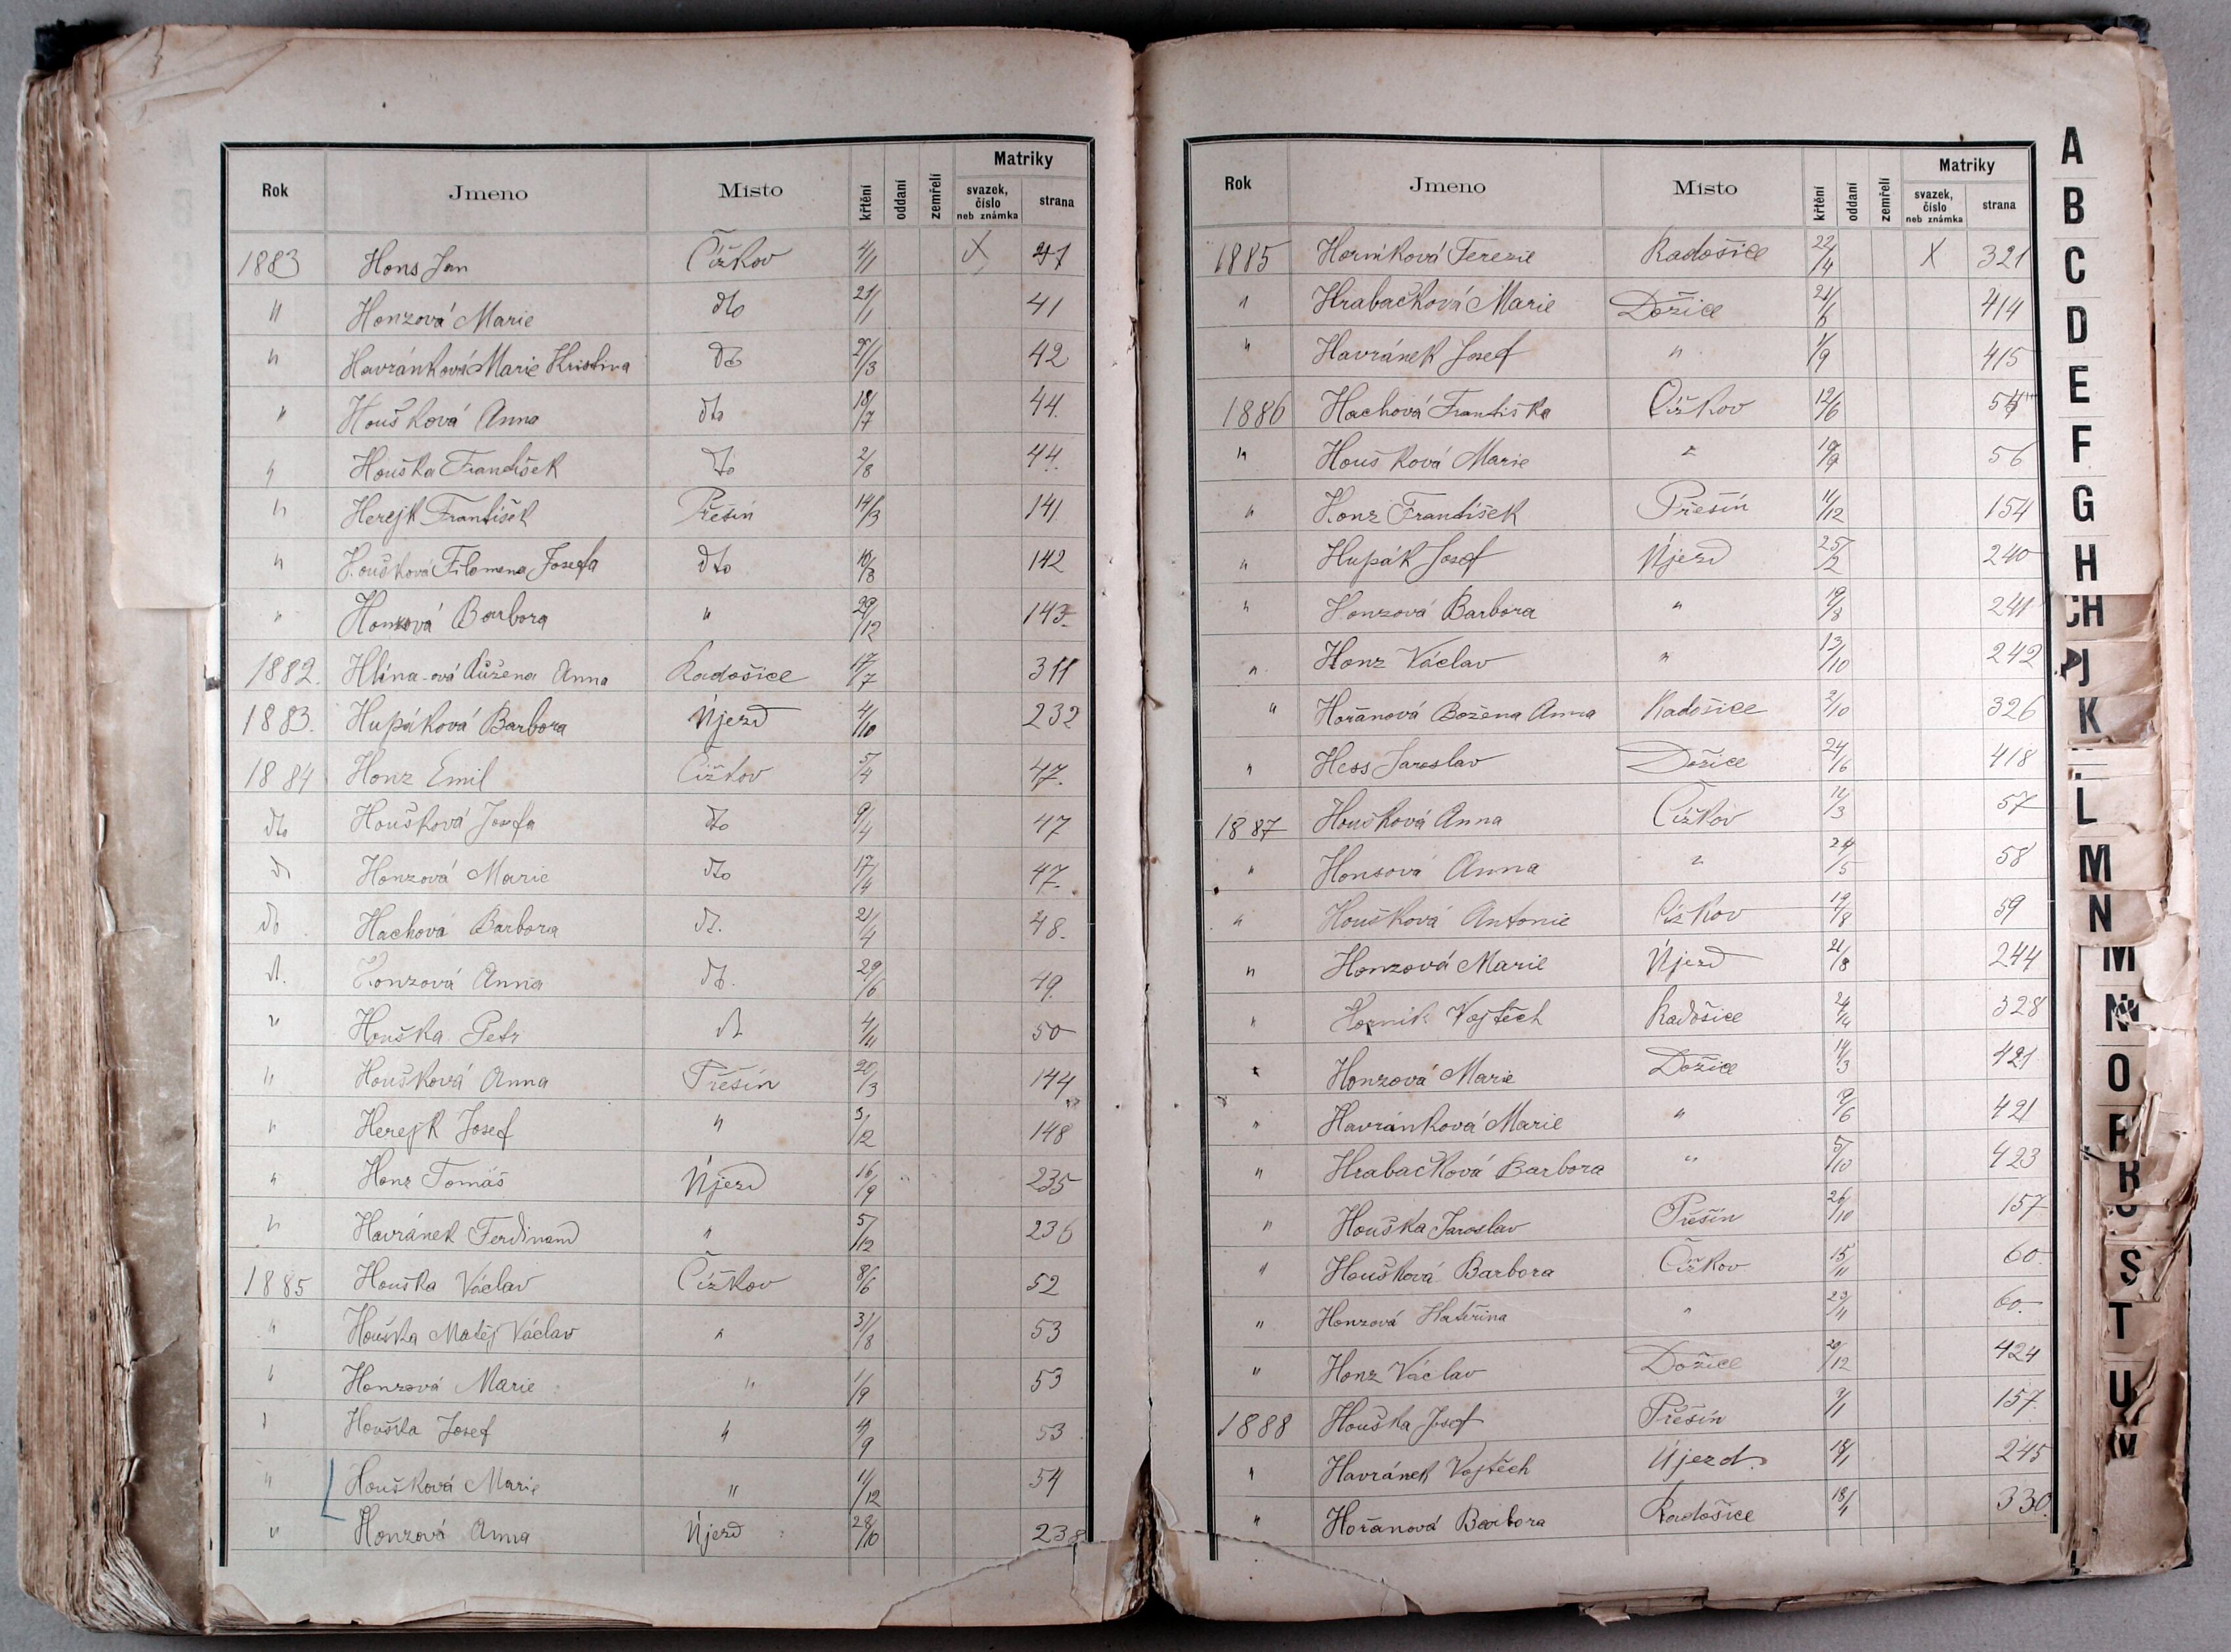 Rok Jmeno Místo křtění oddaní zemřelí Matriky svazek, číslo neb známka strana
1883 Hons Jan Čížkov 4/1 X 41
" Honzová Marie dto 21/1 41
" Havránková Marie Kristina dto 27/3 42
" Houšková Anna dto 18/7 44.
" Houška František dto 2/8 44.
" Herejk František Přešín 14/3 141
" Houšková Filomena Josefa dto 10/8 142
" Honzová Barbora " 29/12 143.
1882. Hlína-ová Růžena Anna Radošice 17/7 311
1883. Hupáková Barbora Újezd 4/10 232
1884 Honz Emil Čížkov 5/4 47.
dto Houšková Josefa dto 9/4 47
dt Honzová Marie dto 17/4 47.
dto Hachová Barbora dt. 21/4 48.
dt. Honzová Anna dto. 29/6 49.
" Houška Petr dt 4/11 50
" Houšková Anna Přešín 20/3 144
" Herejk Josef " 3/12 148
" Honz Tomáš Újezd 16/9 235
" Havránek Ferdinand " 5/12 236
1885 Houška Václav Čížkov 8/6 52
" Houška Matěj Václav " 31/8 53
" Honzová Marie " 1/9 53
" Houška Josef " 4/9 53
" Houšková Marie " 11/12 54
" Honzová Anna Újezd 28/10 238
Rok Jmeno Místo křtění oddaní zemřelí Matriky svazek, číslo neb známka strana
1885 Horníková Terezie Radošice 22/4 X 321
" Hrabačková Marie Dožice 21/6 414
" Havránek Josef " 1/9 415
1886 Hachová Františka Čížkov 12/6 54
" Houšková Marie " 19/9 56
" Honz František Přešín 11/12 154
" Hupák Josef Újezd 25/2 240
" Honzová Barbora " 19/8 241
" Honz Václav " 13/10 242
" Hořanová Božena Anna Radošice 2/10 326
" Hess Jaroslav Dožice 24/6 418
1887 Houšková Anna Čížkov 11/3 57
" Honsová Anna " 24/5 58
" Houšková Antonie Čížkov 19/8 59
" Honzová Marie Újezd 21/8 244
" Horník Vojtěch Radošice 24/4 328
" Honzová Marie Dožice 14/3 421
" Havránková Marie " 9/6 421
" Hrabačková Barbora " 5/10 423
" Houška Jaroslav Přešín 26/10 157
" Houšková Barbora Čížkov 15/11 60.
" Honzová Kateřina " 23/11 60.
" Honz Václav Dožice 20/12 424
1888 Houška Josef Přešín 9/1 157.
" Havránek Vojtěch Újezd. 18/1 245
" Hořanová Barbora Radošice 18/4 330.
A
B
C
D
E
F
G
H
CH
J
K
L
M
N
M
N
O
P
R
S
T
U